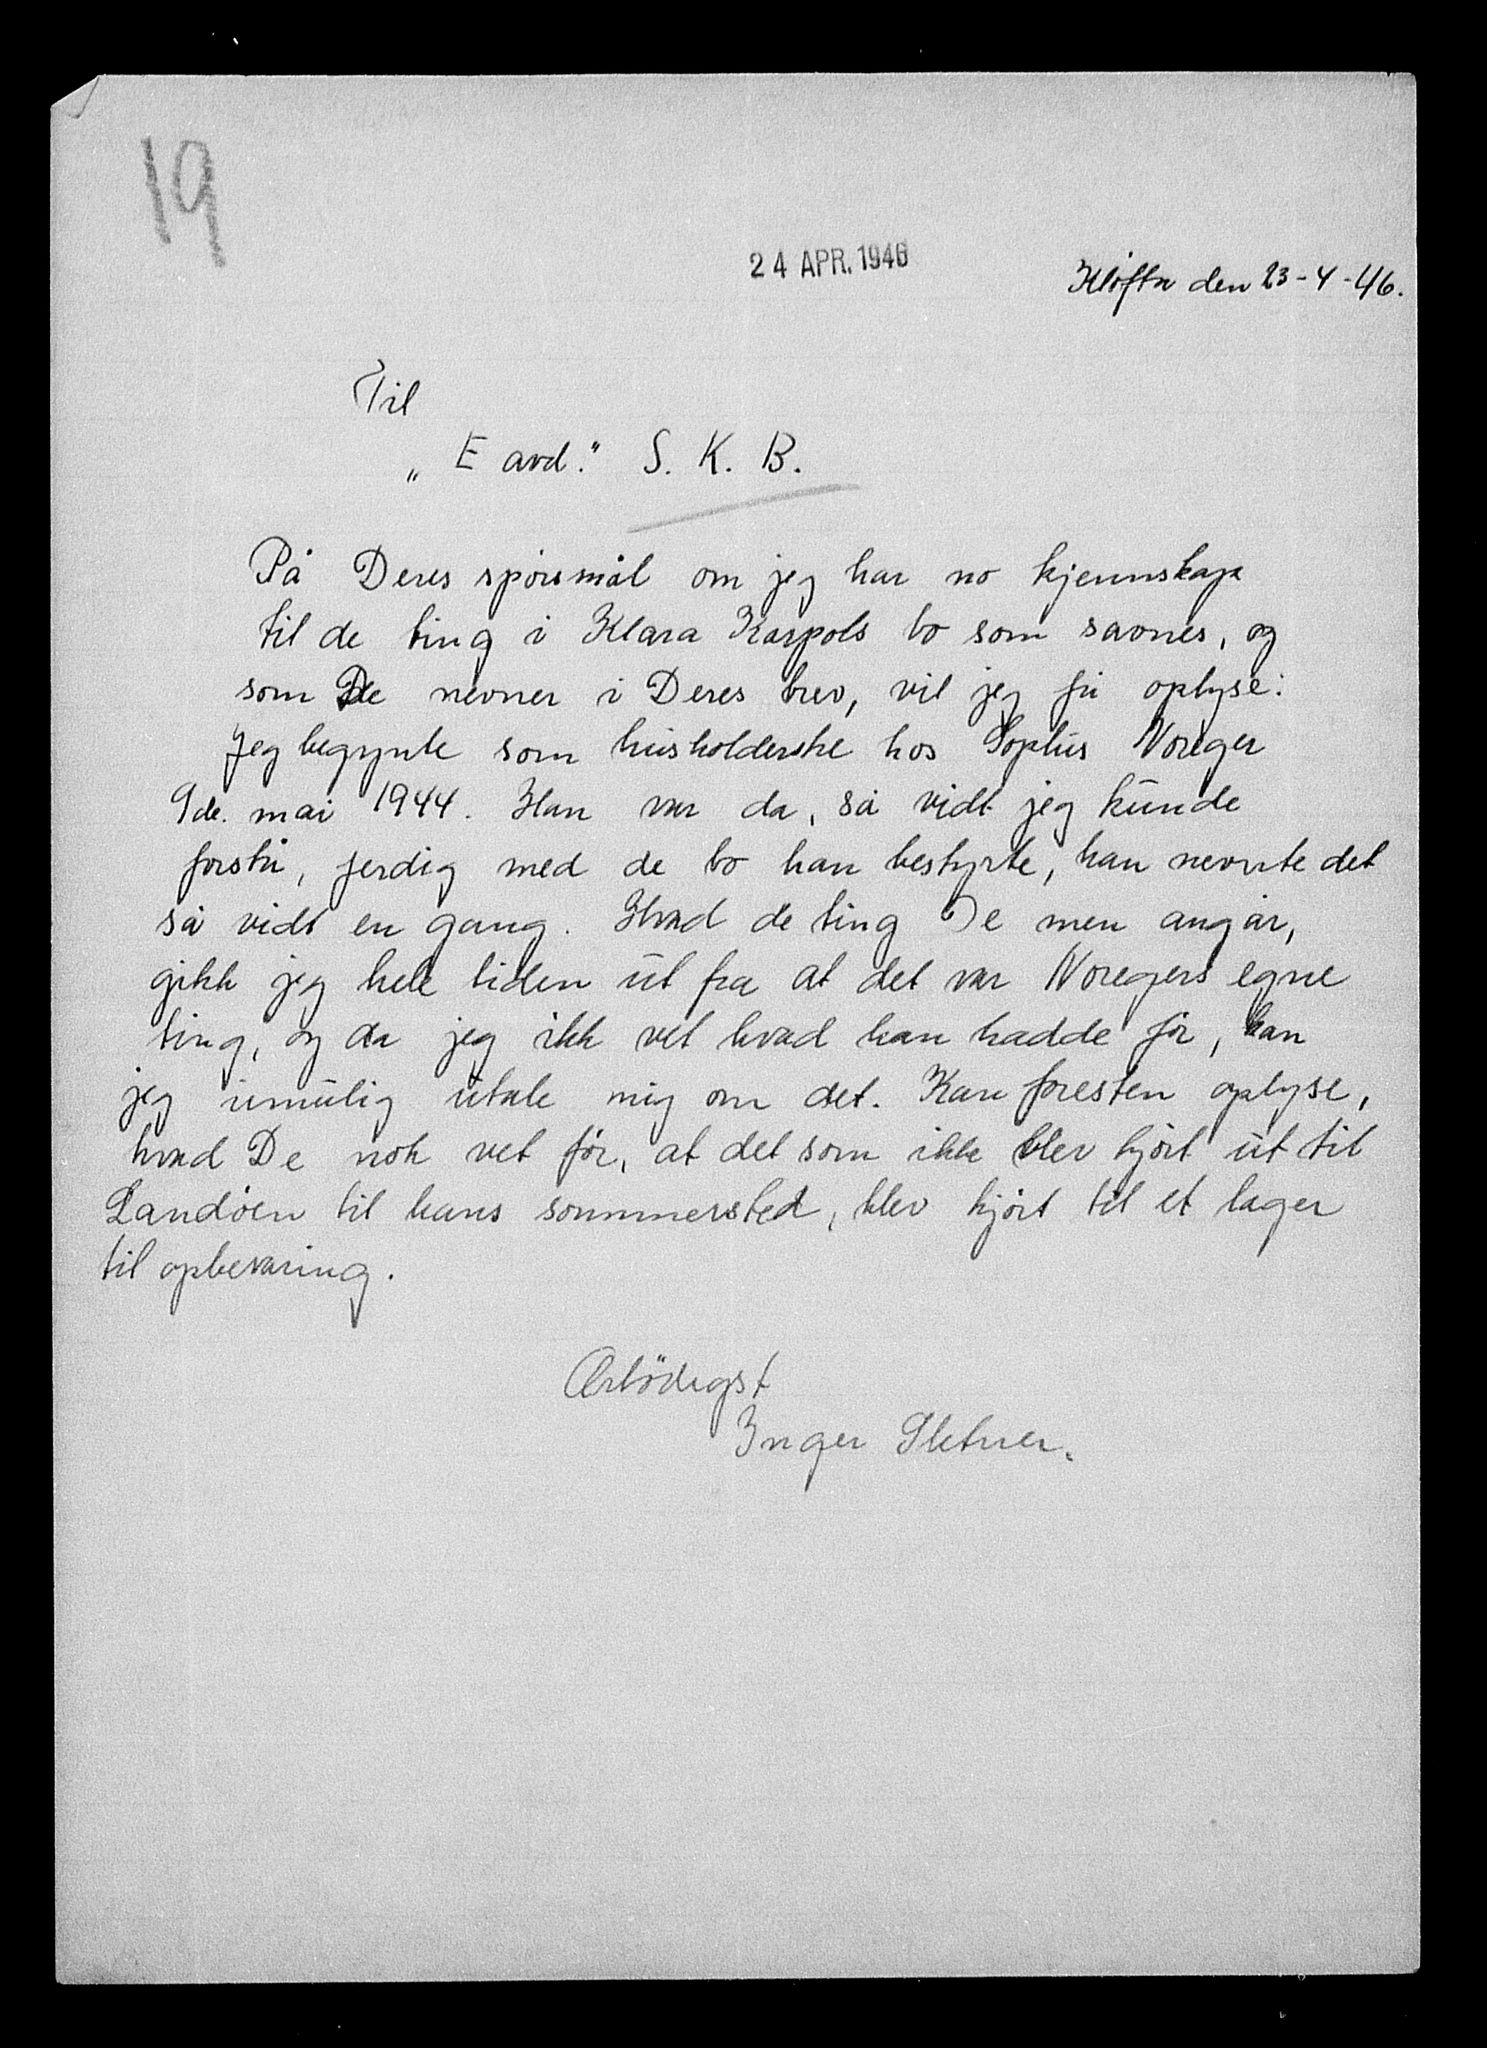 19
24 APR. 1946
Kløfta den 23-4-46.
Til
„E avd." S. K. B.
På Deres spørsmål om jeg har no kjennskap
til de ting i Klara Karpols bo som savnes, og
som De nevner i Deres brev, vil jeg få oplyse:
Jeg begynte som husholderske hos Sophus Noreger
9de. mai 1944. Han var da, så vidt jeg kunde
forstå, ferdig med de bo han bestyrte, han nevnte det
så vidt en gang. Hvad de ting De men angår,
gikk jeg hele tiden ut fra at det var Noregers egne
ting, og da jeg ikk vet hvad han hadde før, kan
jeg umulig utale mig om det. Kan foresten oplyse,
hvad De nok vet før, at det som ikke blev kjørt ut til
Landøen til hans sommersted, blev kjørt til et lager
til opbevaring.
Ærbödigst
Inger Sletner.